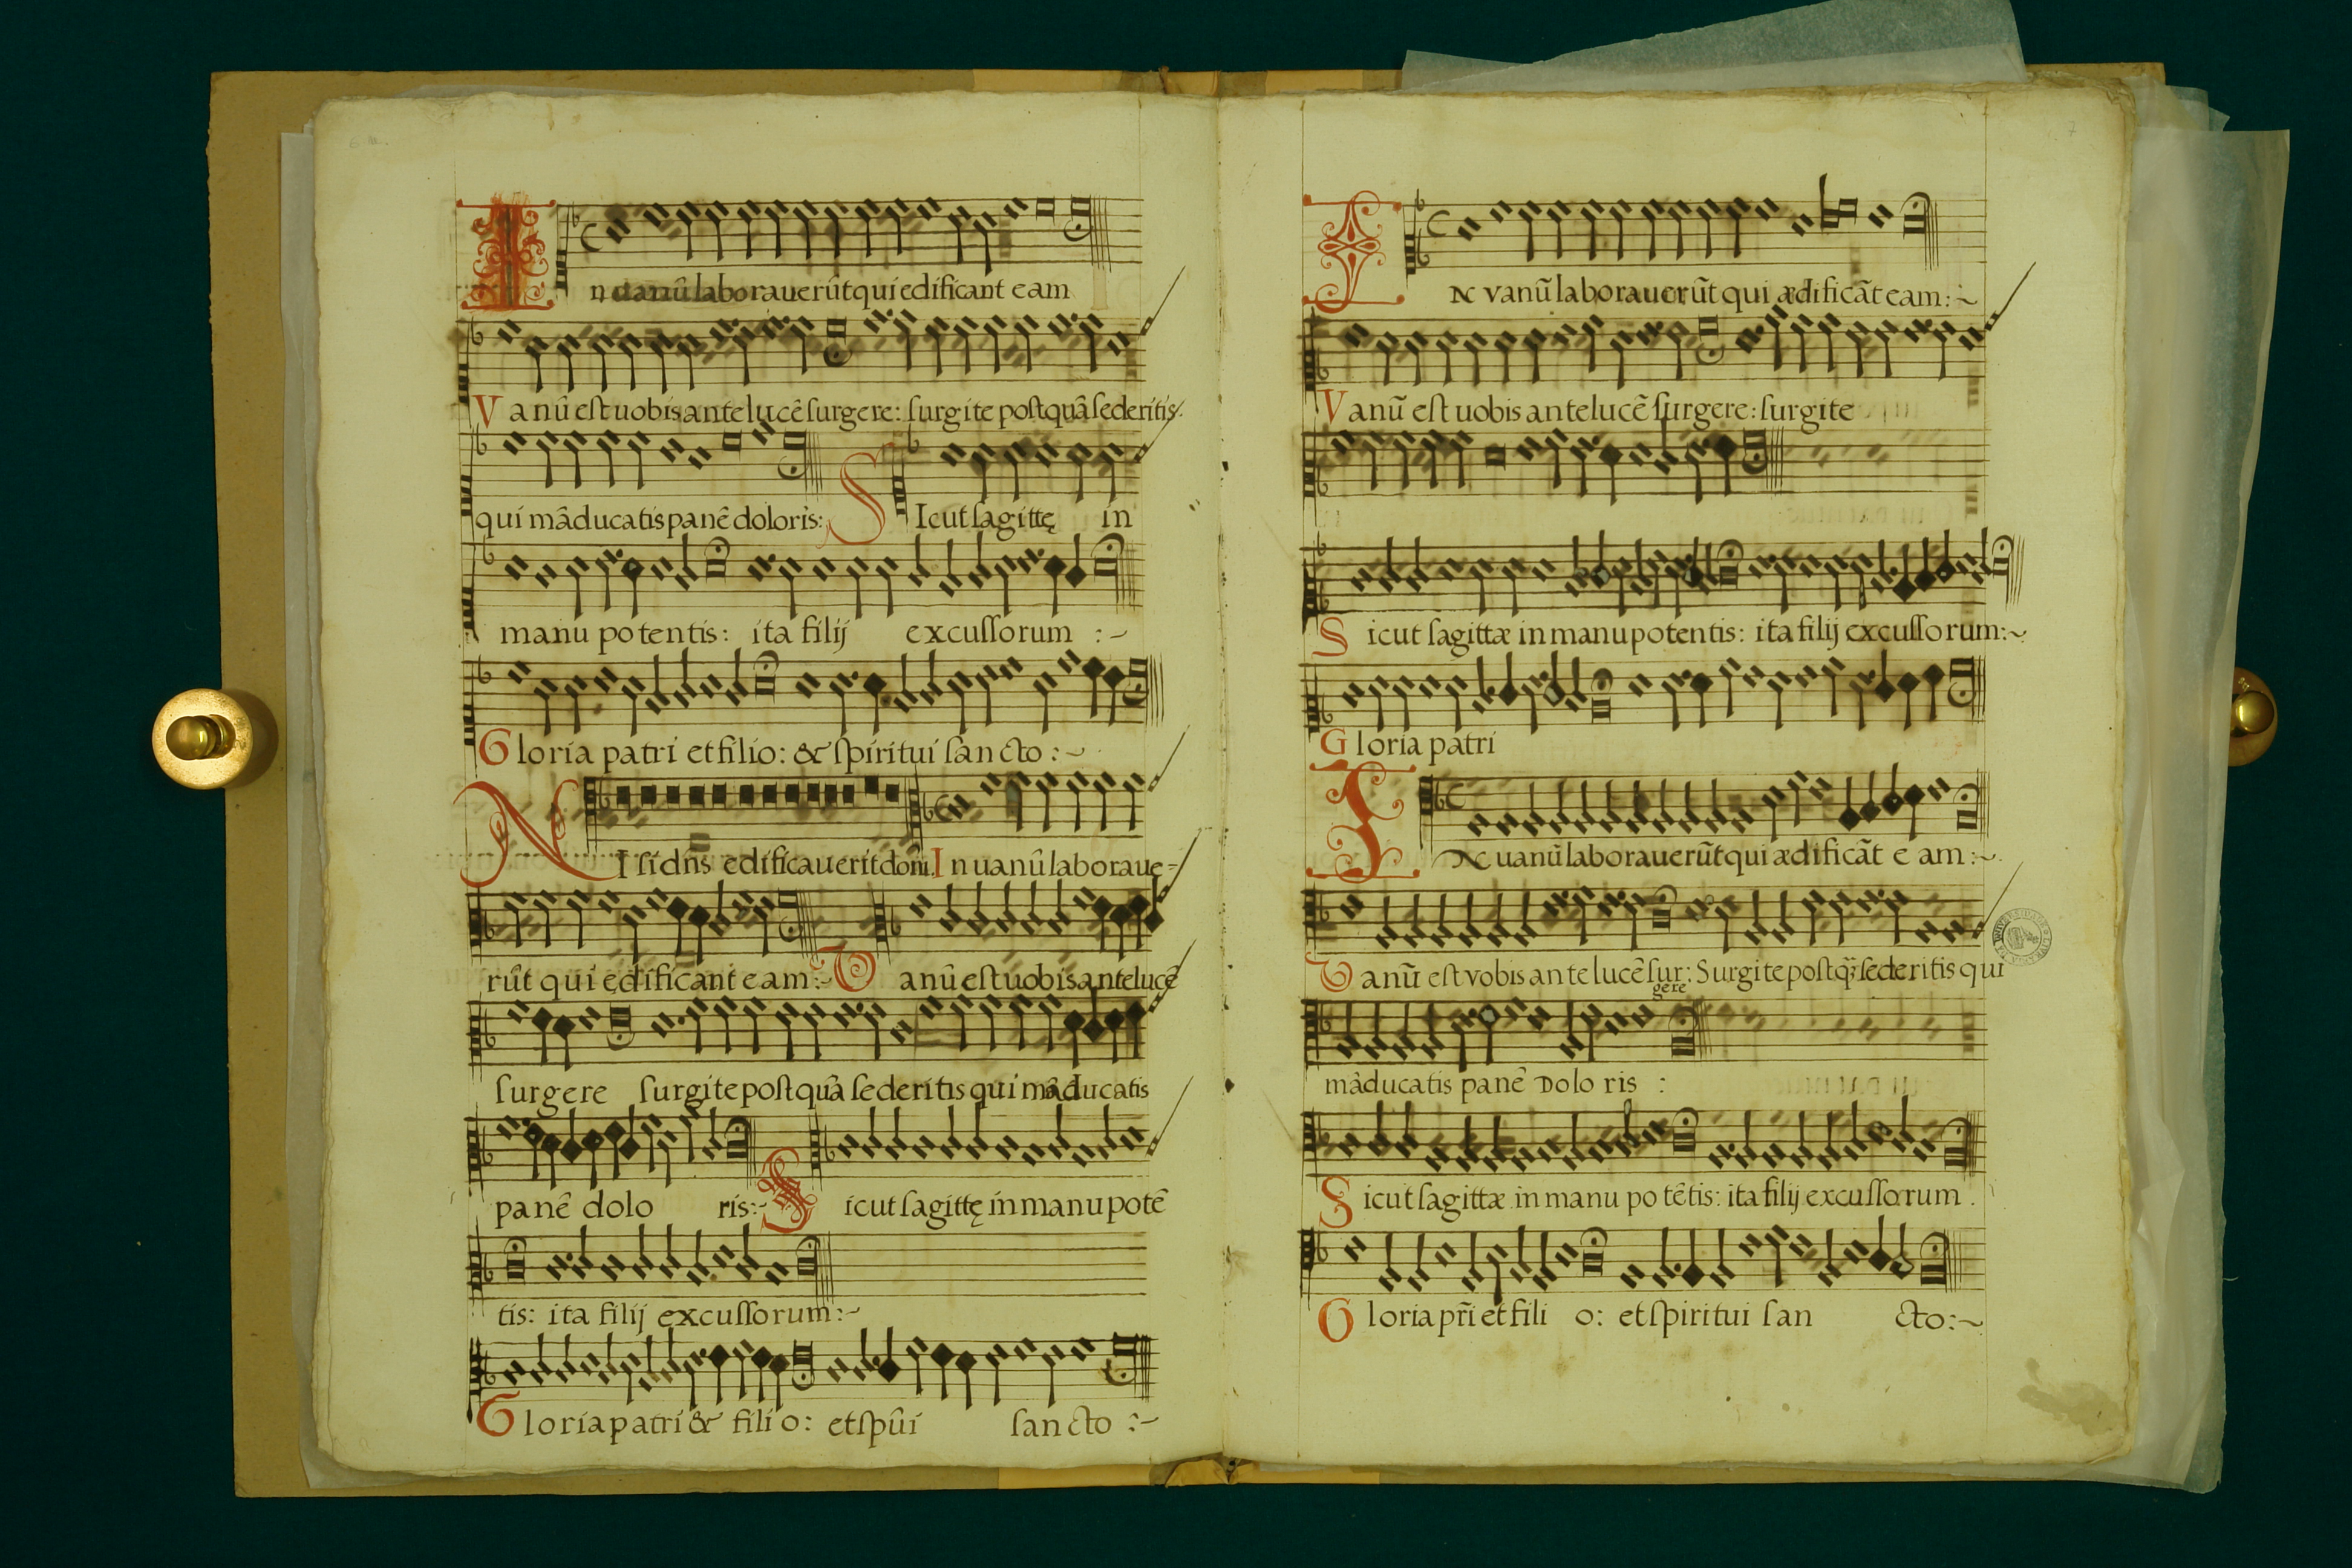 In uanū laborauerūt qui edificant eam
Vanū eſt uobis ante lucē ſurgere: ſurgite poſtquā ſederitis:
qui māducatis panē doloris: SIcut ſagittę in
manu potentis: ita filij excuſſorum :~
Gloria patri et filio: & ſpiritui ſancto :~
NIſi dn̄s edificauerit dom̄. In uanū laboraue-
rūt qui edificant eam:~ Vanū eſt uobis ante lucē
ſurgere ſurgite poſtquā ſederitis qui māducatis
panē dolo ris:~ Sicut ſagittę in manu potē
tis: ita filij excuſſorum:~
Gloria patri & filio: et ſpūi ſancto :~
7
IN vanū laborauerūt qui ædificāt eam:~
Vanū eſt uobis ante lucē ſurgere: ſurgite
Sicut ſagittæ in manu potentis: ita filij excuſſorum:~
Gloria patri
IN uanū laborauerūt qui ædificāt e am:~
Vanū eſt vobis ante lucē ſur: Surgite poſtq̄ ſederitis qui
gere
māducatis panē Dolo ris :
Sicut ſagittæ in manu potētis: ita filij excuſſorum.
Gloria pr̄i et fili o: et ſpiritui ſan cto:~